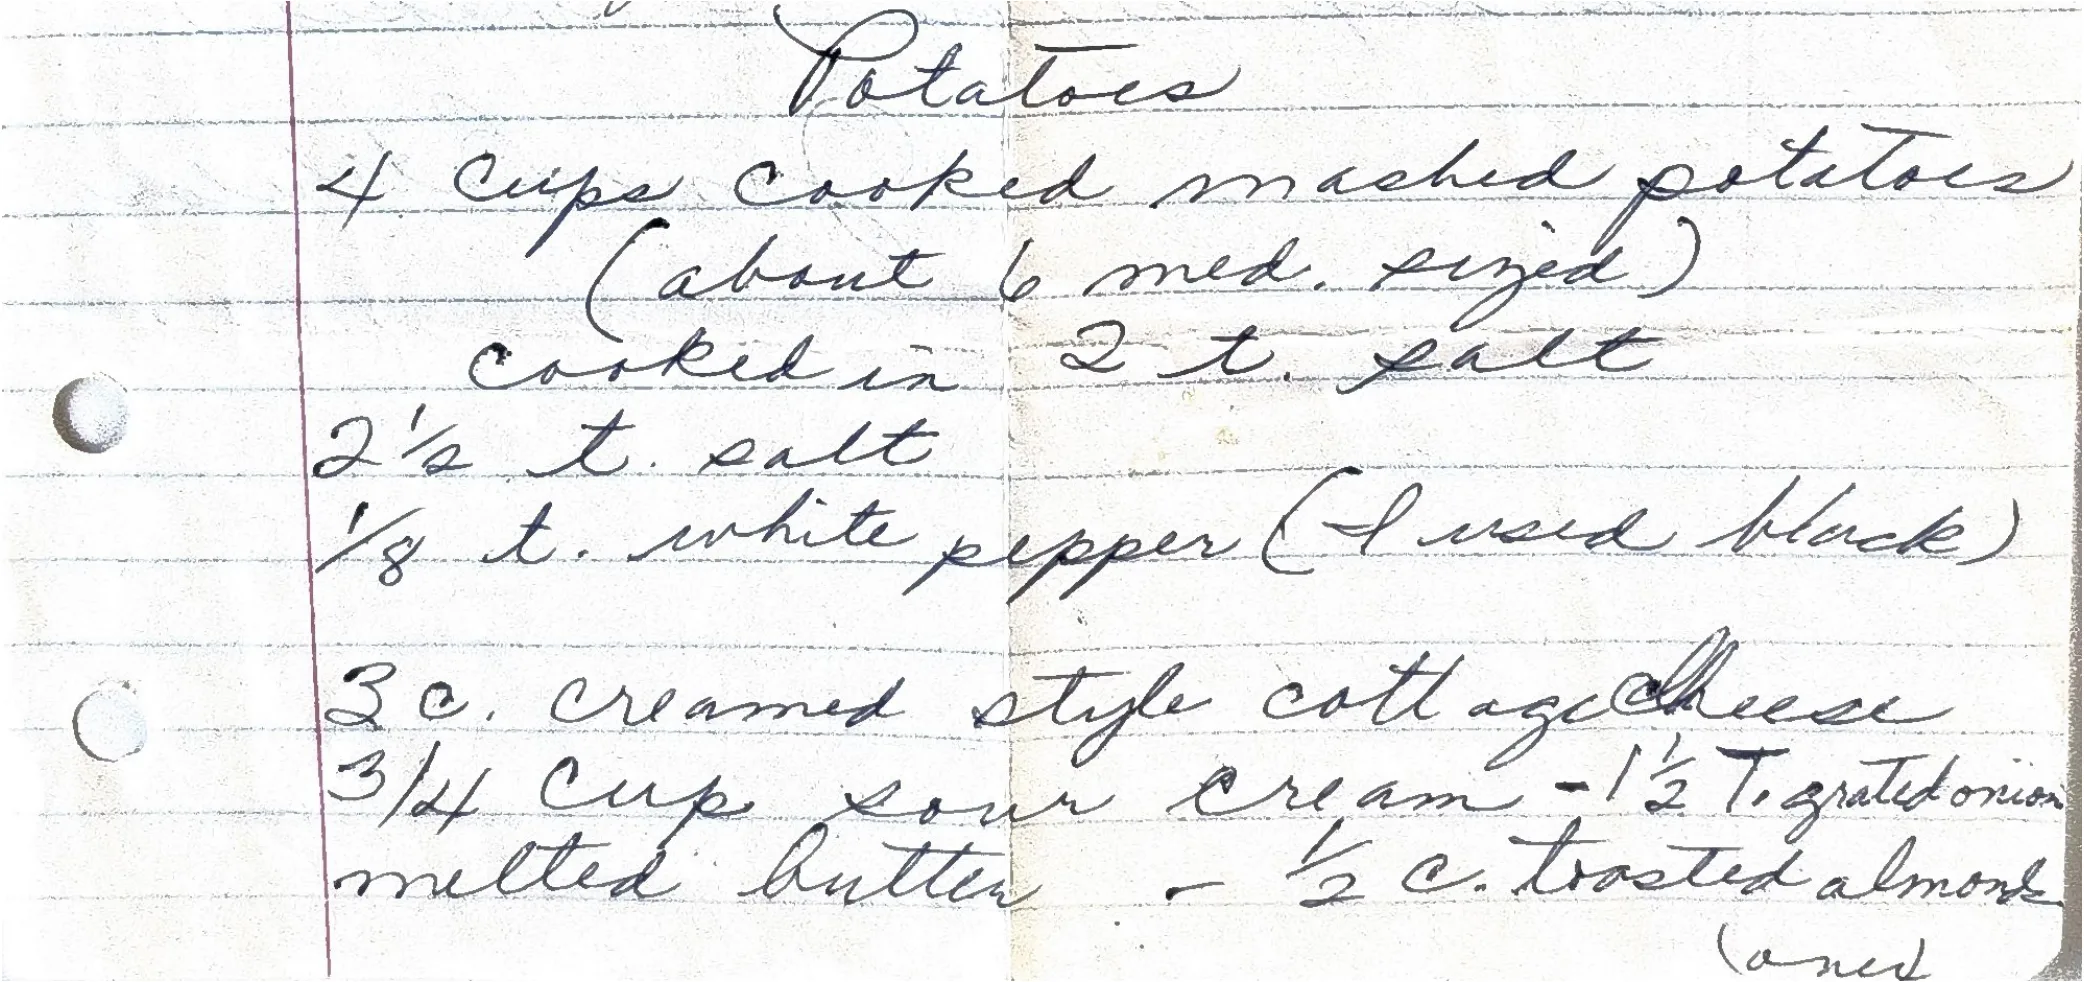 Potatoes
4 cups cooked mashed potatoes
(about 6 med. sized)
cooked in 2 t. salt
2 1/2 t. salt
1/8 t. white pepper (I used black)
3 c. creamed style cottage cheese
3/4 cup sour cream - 1 1/2 T. grated onion
melted butter - 1/2 c. toasted almonds